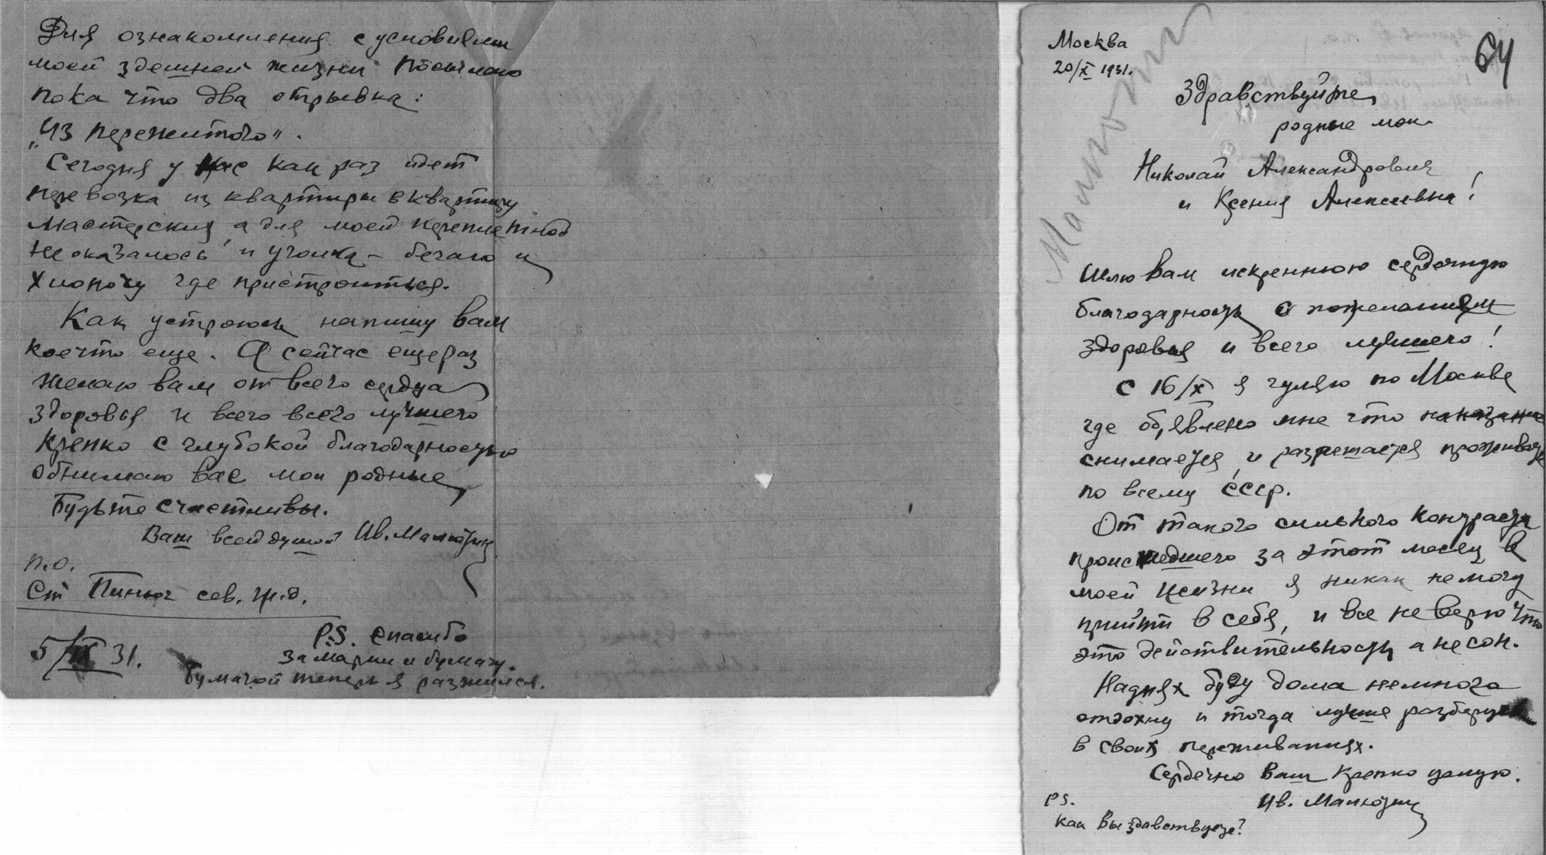 Для ознакомления с условиями
моей здешней жизни посылаю
пока что два отрывка:
„Из пережитого".
Сегодня у нас как раз идет
перевозка из квартиры в квартиру
мастерския, а для моей переплетной
не оказалось и уголка – бегаю и
хлопочу где пристроиться.
Как устроюсь напишу вам
кое что еще. А сейчас еще раз
желаю вам от всего сердца
здоровья и всего всего лучшего
крепко с глубокой благодарностью
обнимаю вас мои родные,
Будьте счастливы.
Ваш всей душой Ив. Малютин
п.о.
Ст Пинюг сев. ж.д.
5/IX 31.
P.S. Спасибо
за марки и бумагу.
Бумагой теперь я разжился.
64
Малютин
Москва
20/X 1931.
Здравствуйте,
родные мои
Николай Александрович
и Ксения Алексеевна!
Шлю вам искреннюю сердечную
благодарность с пожеланием
здоровья и всего лучшего!
С 16/X я гуляю по Москве
где объявлено мне что наказание
снимается и разрешается проживать
по всему СССР.
От такого сильного контраста
происшедшего за этот месяц в
моей жизни я никак не могу
прийти в себя, и все не верю что
это действительность, а не сон.
На днях буду дома немного
отдохну и тогда лучше разберусь
в своих переживаниях.
Сердечно Ваш Крепко целую.
Ив. Малютин
PS.
Как Вы здравствуете?